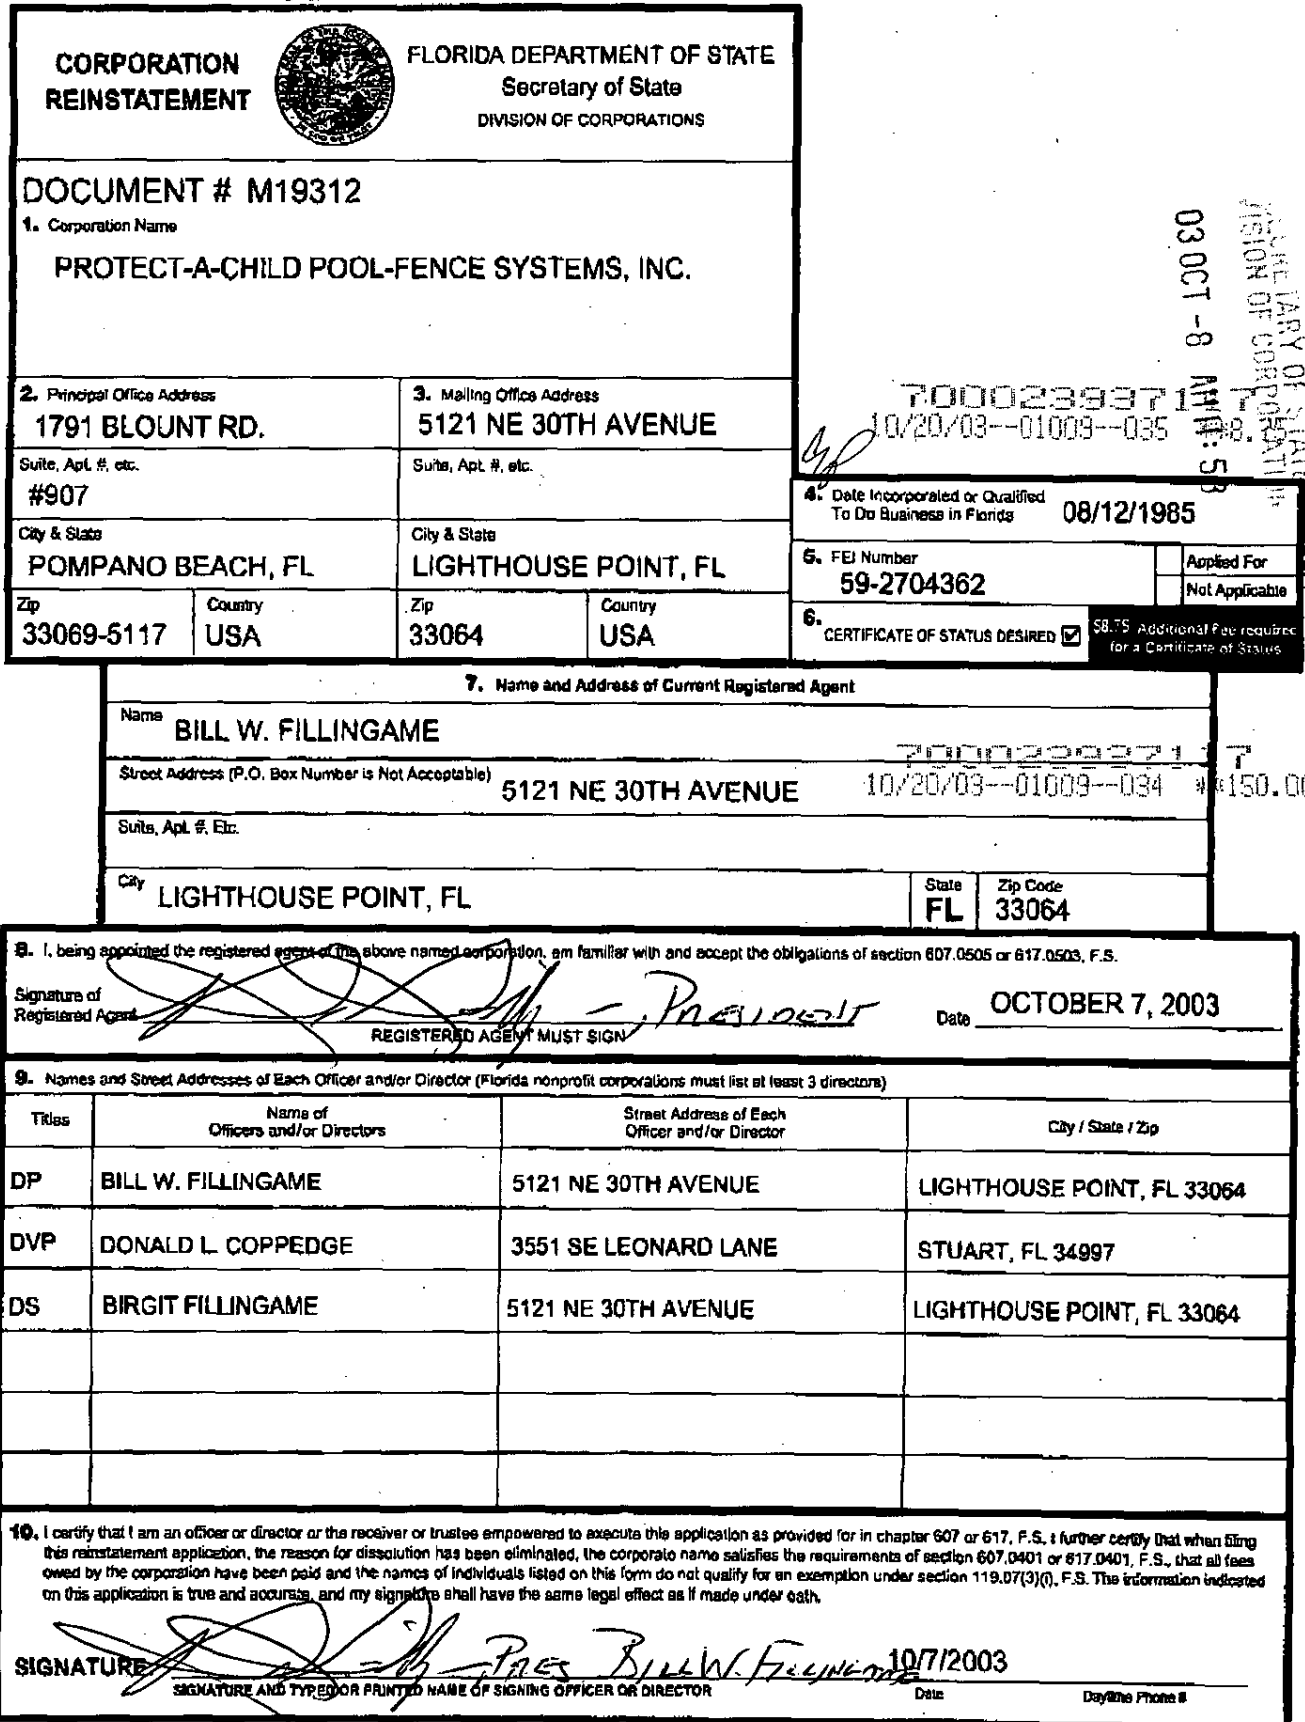 CORPORATION
REINSTATEMENT
FLORIDA DEPARTMENT OF STATE
Secretary of State
DIVISION OF CORPORATIONS
DOCUMENT # M19312
1. Corporation Name
PROTECT-A-CHILD POOL-FENCE SYSTEMS, INC.
03 OCT -8 AM 10: 53
2. Principal Office Address
1791 BLOUNT RD.
3. Mailing Office Address
5121 NE 30TH AVENUE
10/20/03--01009--035
Suite, Apt. #, etc.
#907
Suite, Apt. #, etc.
4. Date Incorporated or Qualified
To Do Business in Florida
08/12/1985
City & State
POMPANO BEACH, FL
City & State
LIGHTHOUSE POINT, FL
5. FEI Number
59-2704362
Applied For
Not Applicable
Zip
33069-5117
Country
USA
Zip
33064
Country
USA
6. CERTIFICATE OF STATUS DESIRED ☑
$8.75 Additional Fee required
for a Certificate of Status
7. Name and Address of Current Registered Agent
Name BILL W. FILLINGAME
Street Address (P.O. Box Number is Not Acceptable) 5121 NE 30TH AVENUE
10/20/03--01009--034 **150.00
Suite, Apt. #, Etc.
City LIGHTHOUSE POINT, FL
State
FL
Zip Code
33064
8. I, being appointed the registered agent of the above named corporation, am familiar with and accept the obligations of section 607.0505 or 617.0503, F.S.
Signature of
Registered Agent
- , PRESIDENT
Date OCTOBER 7, 2003
REGISTERED AGENT MUST SIGN
9. Names and Street Addresses of Each Officer and/or Director (Florida nonprofit corporations must list at least 3 directors)
Titles
Name of
Officers and/or Directors
Street Address of Each
Officer and/or Director
City / State / Zip
DP BILL W. FILLINGAME 5121 NE 30TH AVENUE LIGHTHOUSE POINT, FL 33064
DVP DONALD L. COPPEDGE 3551 SE LEONARD LANE STUART, FL 34997
DS BIRGIT FILLINGAME 5121 NE 30TH AVENUE LIGHTHOUSE POINT, FL 33064
10. I certify that I am an officer or director or the receiver or trustee empowered to execute this application as provided for in chapter 607 or 617, F.S. I further certify that when filing
this reinstatement application, the reason for dissolution has been eliminated, the corporate name satisfies the requirements of section 607.0401 or 617.0401, F.S., that all fees
owed by the corporation have been paid and the names of individuals listed on this form do not qualify for an exemption under section 119.07(3)(i), F.S. The information indicated
on this application is true and accurate, and my signature shall have the same legal effect as if made under oath.
SIGNATURE
- , PRES BILL W. FILLINGAME 10/7/2003
SIGNATURE AND TYPED OR PRINTED NAME OF SIGNING OFFICER OR DIRECTOR
Date
Daytime Phone #